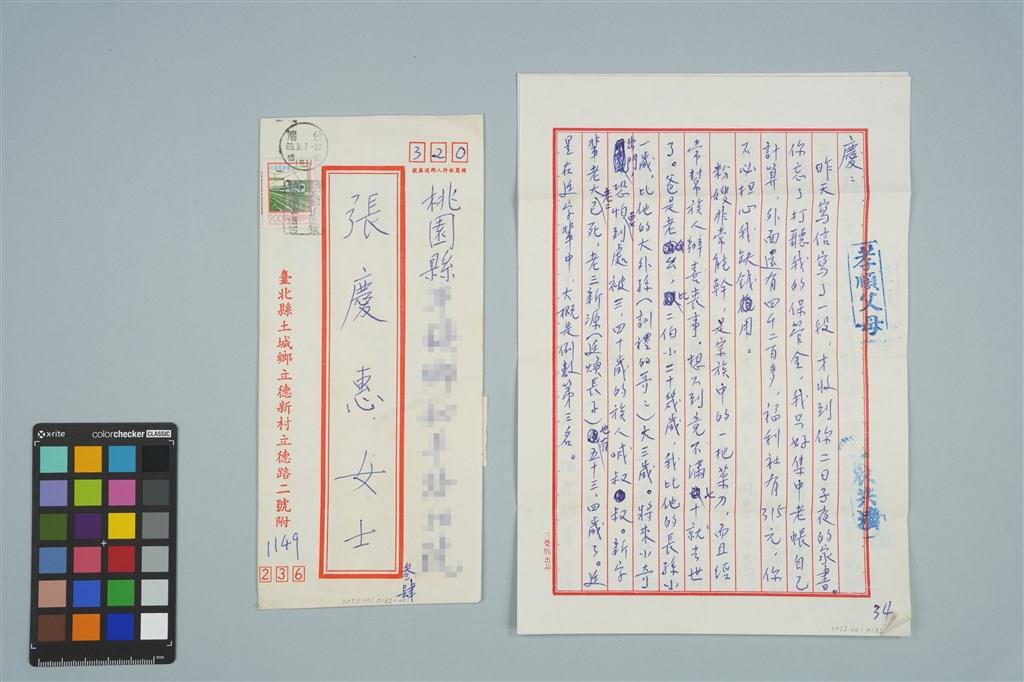 台灣
69.3.7.-22
200
320
橫寫收件人郵遞區號
桃園縣
張慶惠女士
臺北縣土城鄉立德新村立德路二號附
1149
236
叁肆
2023.001.0132
x-rite
colorchecker CLASSIC
mm
孝順父母
慶:
昨天寫信寫了一段,才收到你二日子夜的家書。
你忘了打聽我的保管金,我只好集中老帳自己
計算,外面還有四千二百多,福利社有315元,你
不必担心我缺錢用。
粉嫂非常能幹,是宗族中的一把菜刀,而且經
常幫族人辦喜喪事,想不到竟不滿七十就去世
了。爸是老么,比二伯小二十幾歲,我比他的長孫小
一歲,比他的大外孫(訓禮的哥ミ)大三歲。將來小奇
出門,恐怕到處要被三、四十歲的族人喊叔叔。新字
輩老大、老二已死,老三新源(廷煩長子)也有五十三、四歲了。廷
是在廷字輩中,大概是倒數第三名。
34
2023.001.0132